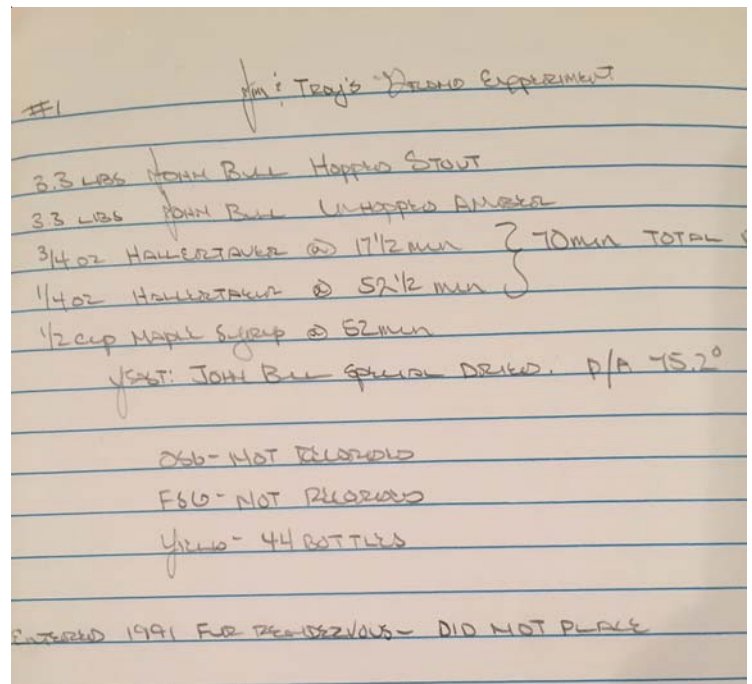 #1 Jim & Troy's Promo Experiment
3.3 LBS JOHN BULL HOPPED STOUT
3.3 LBS JOHN BULL UNHOPPED AMBER
3/4 oz HALLERTAUER @ 17 1/2 min } 70 min TOTAL
1/4 oz HALLERTAUER @ 52 1/2 min
1/2 cup MAPLE SYRUP @ 52 min
YEAST: JOHN BULL SPECIAL DRIED. P/A 75.2°
OSG - NOT RECORDED
FSG - NOT RECORDED
YIELD - 44 BOTTLES
ENTERED 1991 FUR RENDEZVOUS - DID NOT PLACE